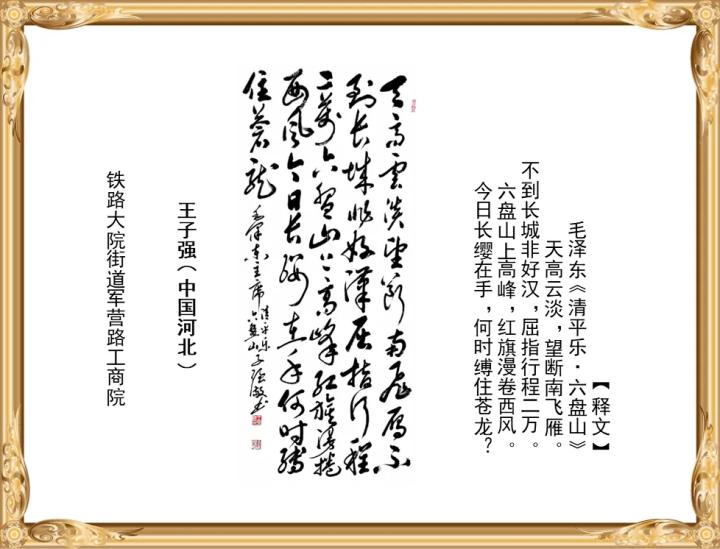 【释文】
毛泽东《清平乐·六盘山》
天高云淡，望断南飞雁。
不到长城非好汉，屈指行程二万。
六盘山上高峰，红旗漫卷西风。
今日长缨在手，何时缚住苍龙？
天高雲淡望断南飛雁不
到长城非好漢屈指行程
二萬六盘山上高峰红旗漫捲
西風今日长缨在手何时缚
住蒼龙 毛泽东主席清平乐六盘山子强敬书
王子强（中国河北）
铁路大院街道军营路工商院